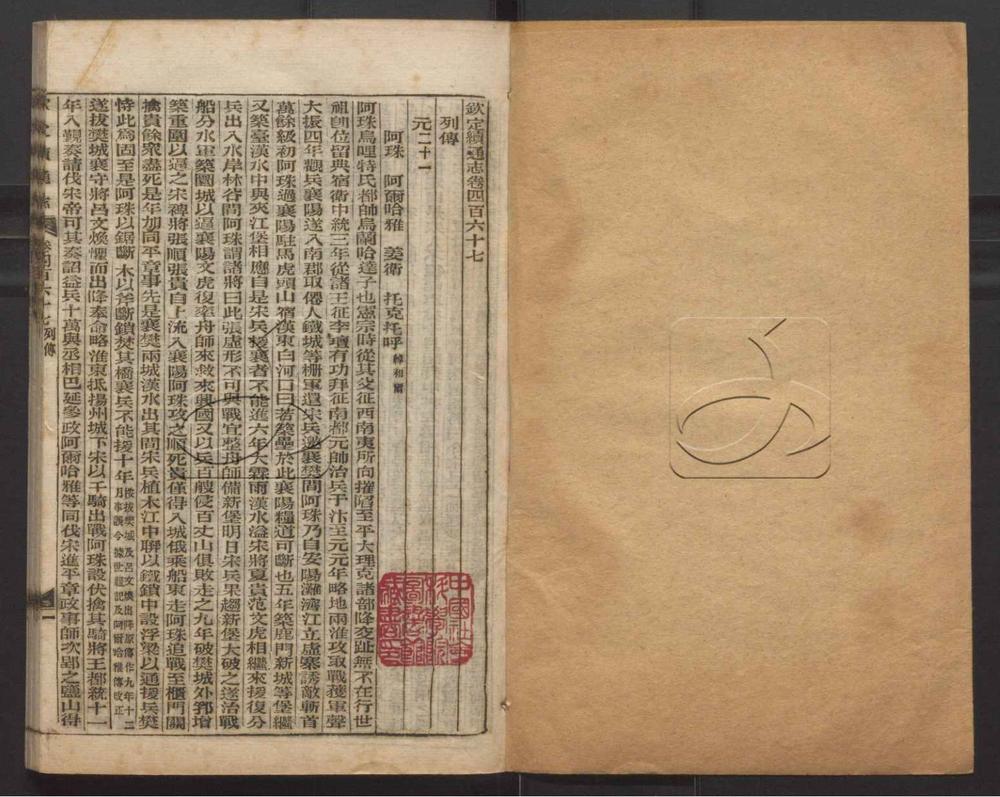 欽定續通志卷四百六十七
列傳
元二十一
阿珠 阿爾哈雅 姜衛 托克托呼 綽和爾
阿珠烏哩特氏都帥烏蘭哈達子也憲宗時從其父征西南夷所向摧陷至平大理克諸部降交趾無不在行世
祖卽位留典宿衛中統三年從諸王征李璮有功拜征南都元帥治兵于汴至元元年略地兩淮攻取戰獲軍聲
大振四年觀兵襄陽遂入南郡取僊人鐵城等柵軍還宋兵邀襄樊間阿珠乃自安陽灘濟江立虛寨誘敵斬首
萬餘級初阿珠過襄陽駐馬虎頭山宿漢東白河口曰若築壘於此襄陽糧道可斷也五年築鹿門新城等堡繼
又築臺漢水中與夾江堡相應自是宋兵援襄者不能進六年大霖雨漢水溢宋將夏貴范文虎相繼來援復分
兵出入水岸林谷間阿珠謂諸將曰此張虛形不可與戰宜整舟師備新堡明日宋兵果趨新堡大破之遂治戰
船分水軍築圜城以逼襄陽文虎復率舟師來救來興國又以兵百艘侵百丈山俱敗走之九年破樊城外郛增
築重圍以逼之宋裨將張順張貴自上流入襄陽阿珠攻之順死貴僅得入城俄乘船東走阿珠追戰至櫃門關
擒貴餘衆盡死是年加同平章事先是襄樊兩城漢水出其間宋兵植木江中聯以鐵鎖中設浮梁以通援兵樊
恃此爲固至是阿珠以鋸斷木以斧斷鎖焚其橋襄兵不能援十年 按拔樊城及呂文煥出降原傳作九年十二月事誤今據世祖紀及阿爾哈雅傳改正
遂拔樊城襄守將呂文煥懼而出降奉命略淮東抵揚州城下宋以千騎出戰阿珠設伏擒其騎將王都統十一
年入覲奏請伐宋帝可其奏詔益兵十萬與丞相巴延參政阿爾哈雅等同伐宋進平章政事師次郢之鹽山得
卷四百六十七列傳
一